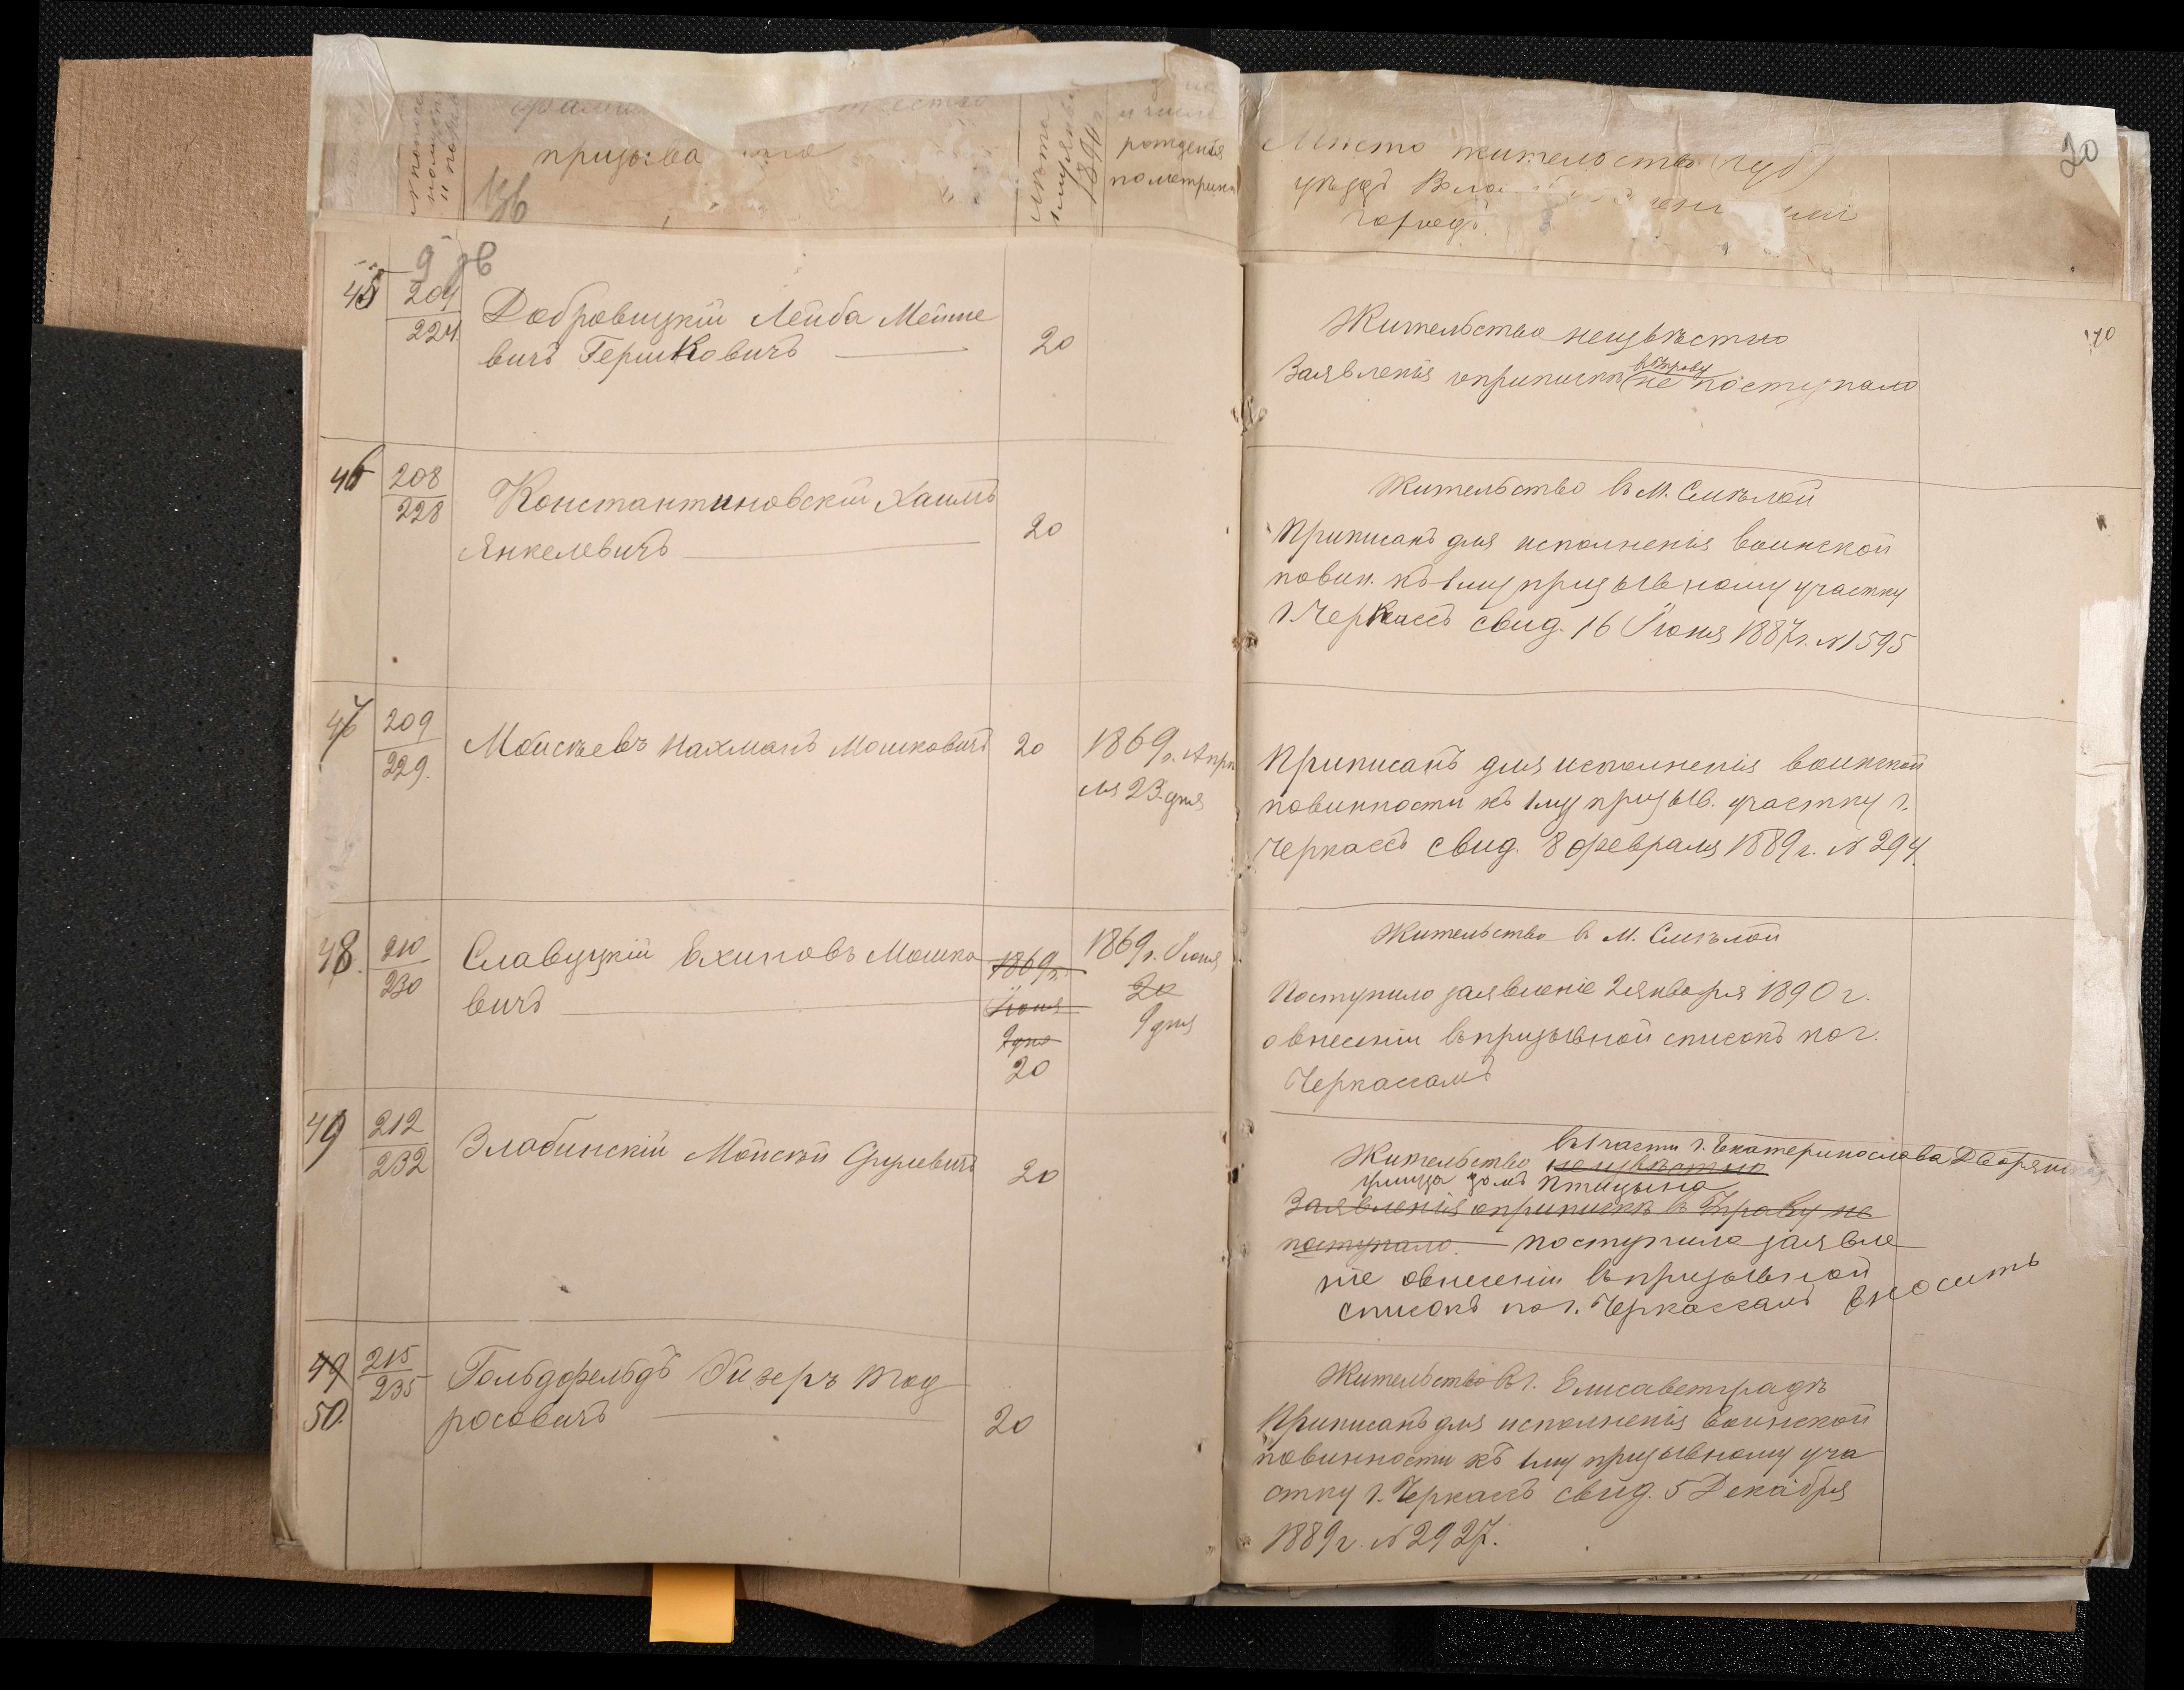 призыва
рожденія
по метрик
Мѣсто жительства (губ)
уѣздъ
городъ
20
45
9
204
224
Добровицкій Лейба Мейше
вичъ Гершковичъ
20
Жительство неизвѣстно
въ Управу
Заявленія о припискѣ не поступало
46
208
228
Константиновскій Хаимъ
Янкелевичъ
20
Жительство въ М. Смѣлой
Приписанъ для исполненія воинской
повин. къ 1му призывному участку
г. Черкассъ свид. 16 Іюня 1887 г. № 1595
47
209
229.
Мойсѣевъ Нахманъ Мошковичъ
20
1869 г. Апрѣ
ля 23 дня
Приписанъ для исполненія воинской
повинности къ 1му призыв. участку г.
Черкассъ свид. 8 февраля 1889 г. № 294.
48.
210
230
Славуцкій Мошко
вичъ
1869 г.
Іюня
9 дня
20
1869 г. Іюня
20
9 дня
Жительство в М. Смѣлой
Поступило заявленіе 2 января 1890 г.
о внесеніи въ призывной списокъ по г.
Черкассамъ
49
212
232
Злобинскій Мойсѣй Сруевичъ
20
въ 1 части г. Екатеринослава Дворянская
Жительство неизвѣстно
улица домъ Птицына
Заявленія о припискѣ в Управу не
поступало. поступило заявле
ніе о внесеніи въ призывной
списокъ по г. Черкассамъ вносить
49
50.
215
235
Гольдфельдъ Тод
росовичъ
20
Жительство въ г. Елисаветградѣ
Приписанъ для исполненія воинской
повинности къ 1му призывному уча
стку г. Черкассъ свид. 5 Декабря
1889 г. № 2927.